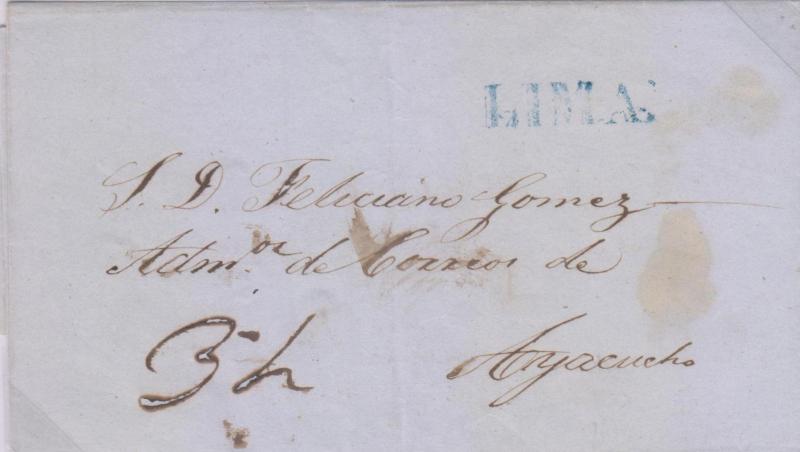 LIMA.
S. D. Feliciano Gomez
Adm.or de Correos de
Ayacucho